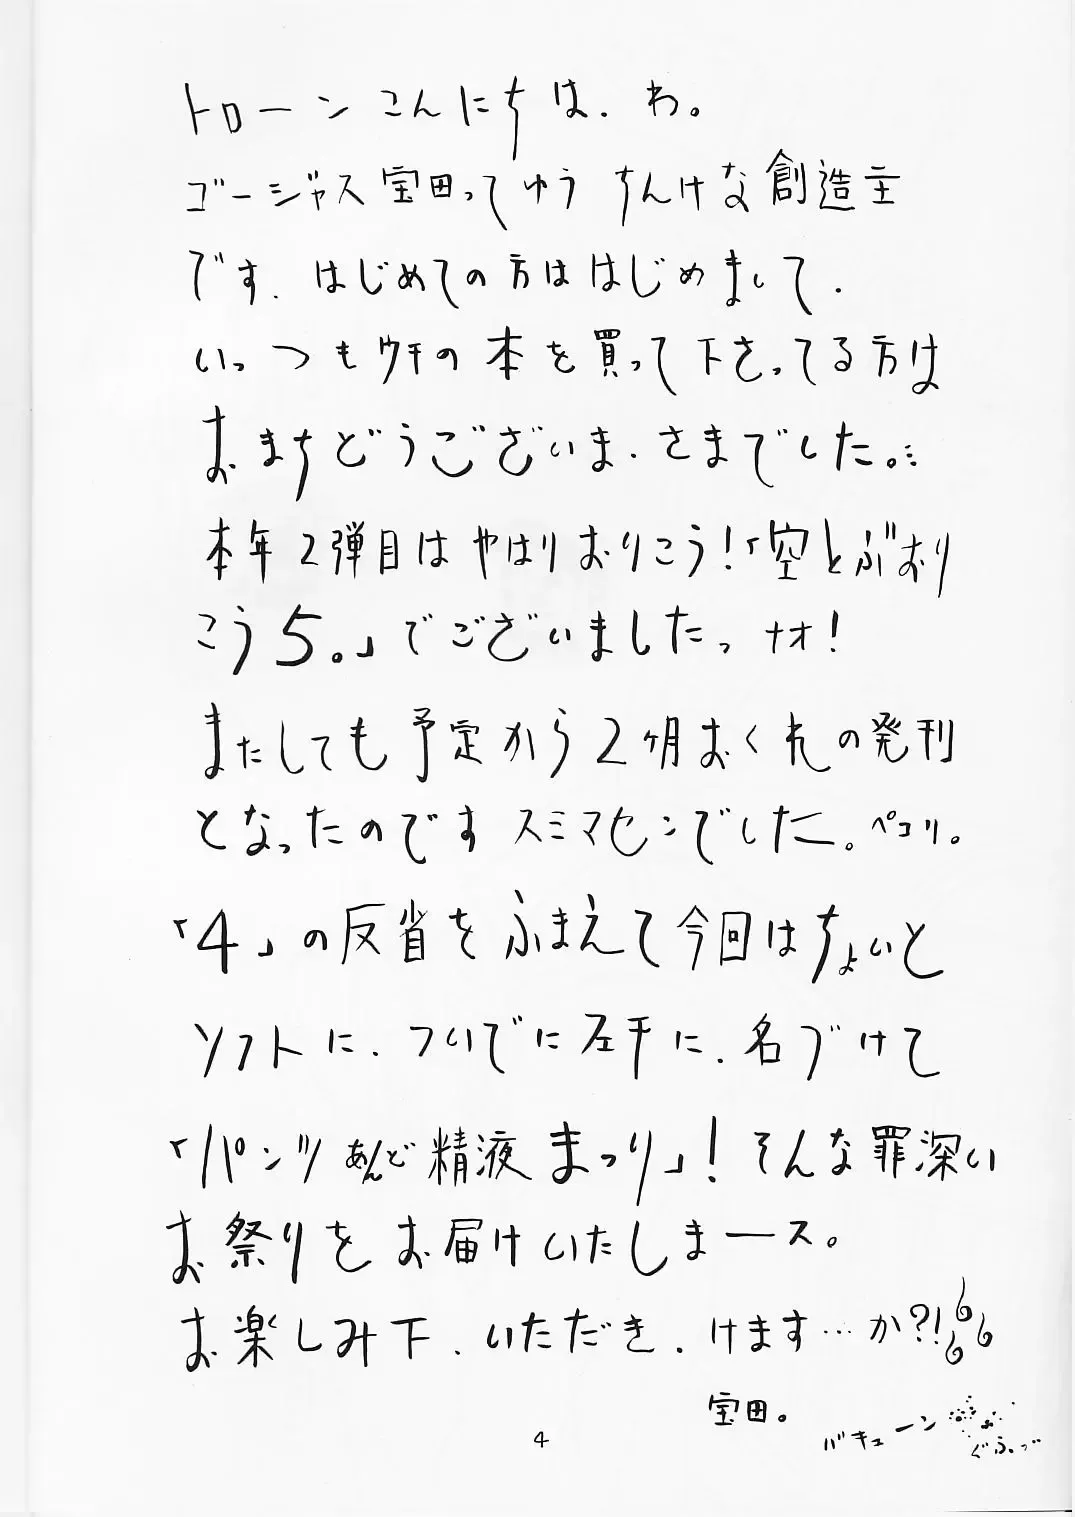 トローン こんにちは. わ。
ゴージャス宝田ってゆう ちんけな創造主
です. はじめての方ははじめまして.
いっつもウチの本を買って下さってる方は
おまちどうございま.さまでした。
本年2弾目はやはりおりこう!「空とぶおり
こう5。」でございましたっ ナオ!
またしても予定から2ヶ月おくれの発刊
となったのです スミマセンでした。ペコリ。
「4」の反省をふまえて今回はちょいと
ソフトに. ついでに左手に. 名づけて
「パンツあんど精液まつり」! そんな罪深い
お祭りをお届けいたしまース。
お楽しみ下.いただき.けます…か?!
宝田。
バキューン
ぐふっ
4